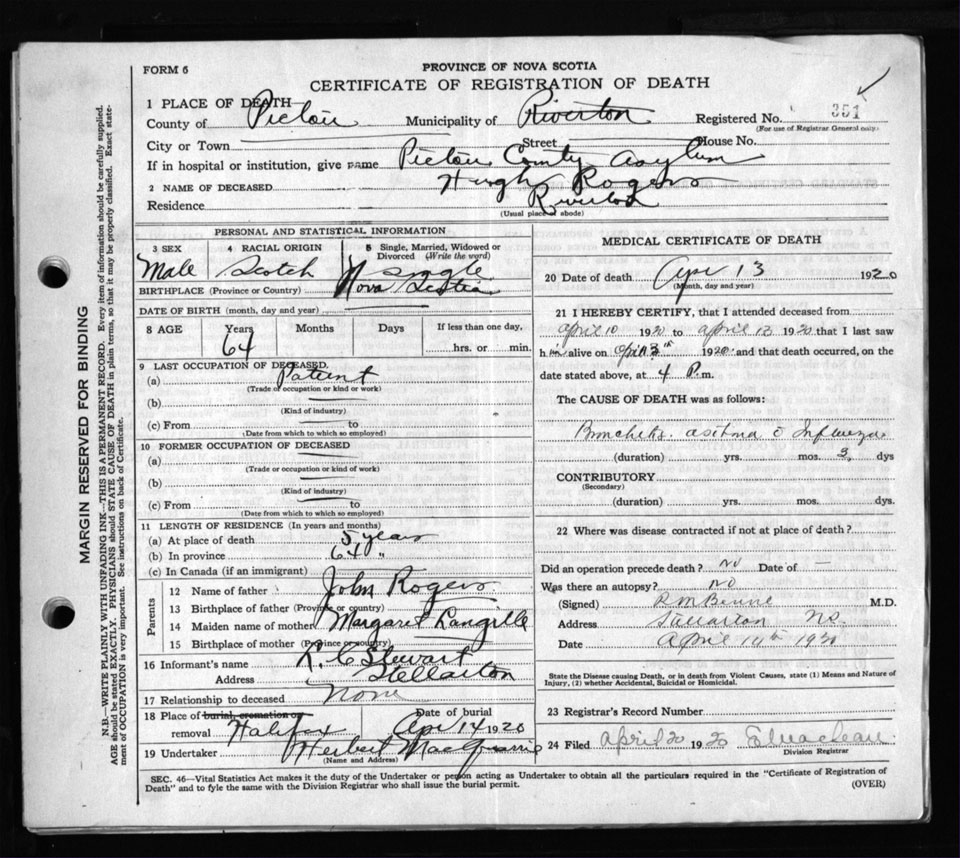 FORM 6
PROVINCE OF NOVA SCOTIA
CERTIFICATE OF REGISTRATION OF DEATH
1 PLACE OF DEATH
County of Pictou Municipality of Riverton Registered No. 351
(For use of Registrar General only)
City or Town Street House No.
If in hospital or institution, give name Pictou County Asylum
2 NAME OF DECEASED Hugh Rogers
Residence Riverton
(Usual place of abode)
PERSONAL AND STATISTICAL INFORMATION
3 SEX 4 RACIAL ORIGIN 5 Single, Married, Widowed or Divorced (Write the word)
Male Scotch Single
BIRTHPLACE (Province or Country) Nova Scotia
DATE OF BIRTH (month, day and year)
8 AGE Years Months Days If less than one day,
64 hrs. or min.
9 LAST OCCUPATION OF DECEASED
(a) Patient
(Trade or occupation or kind or work)
(b)
(Kind of industry)
(c) From to
(Date from which to which so employed)
10 FORMER OCCUPATION OF DECEASED
(a)
(Trade or occupation or kind of work)
(b)
(Kind of industry)
(c) From to
(Date from which to which so employed)
11 LENGTH OF RESIDENCE (In years and months)
(a) At place of death 5 years
(b) In province 64 "
(c) In Canada (if an immigrant)
Parents
12 Name of father John Rogers
13 Birthplace of father (Province or country)
14 Maiden name of mother Margaret Langille
15 Birthplace of mother (Province or country)
16 Informant's name R. C Stewart
Address Stellarton
17 Relationship to deceased None
18 Place of burial, cremation or removal Halifax Date of burial Apr 14 1920
19 Undertaker Herbert MacQuarrie
(Name and Address)
MEDICAL CERTIFICATE OF DEATH
20 Date of death Apr 13 1920
(Month, day and year)
21 I HEREBY CERTIFY, that I attended deceased from
April 10 1920 to April 13 1920 that I last saw
h im alive on April 13th 1920 and that death occurred, on the
date stated above, at 4 P.m.
The CAUSE OF DEATH was as follows:
Bronchitis. asthma c̄ Influenza
(duration) yrs. mos. 3 dys
CONTRIBUTORY
(Secondary)
(duration) yrs. mos. dys.
22 Where was disease contracted if not at place of death?
Did an operation precede death? No Date of —
Was there an autopsy? No
(Signed) M.D.
Address Stellarton NS.
Date April 14th 1920
State the Disease causing Death, or in death from Violent Causes, state (1) Means and Nature of
Injury, (2) whether Accidental, Suicidal or Homicidal.
23 Registrar's Record Number
24 Filed April 20 1920
Division Registrar
SEC. 46—Vital Statistics Act makes it the duty of the Undertaker or person acting as Undertaker to obtain all the particulars required in the "Certificate of Registration of
Death" and to fyle the same with the Division Registrar who shall issue the burial permit. (OVER)
MARGIN RESERVED FOR BINDING
N.B.—WRITE PLAINLY WITH UNFADING INK.—THIS IS A PERMANENT RECORD. Every item of information should be carefully supplied.
AGE should be stated EXACTLY. PHYSICIANS should STATE CAUSE OF DEATH in plain terms, so that it may be properly classified. Exact state-
ment of OCCUPATION is very important. See instructions on back of Certificate.